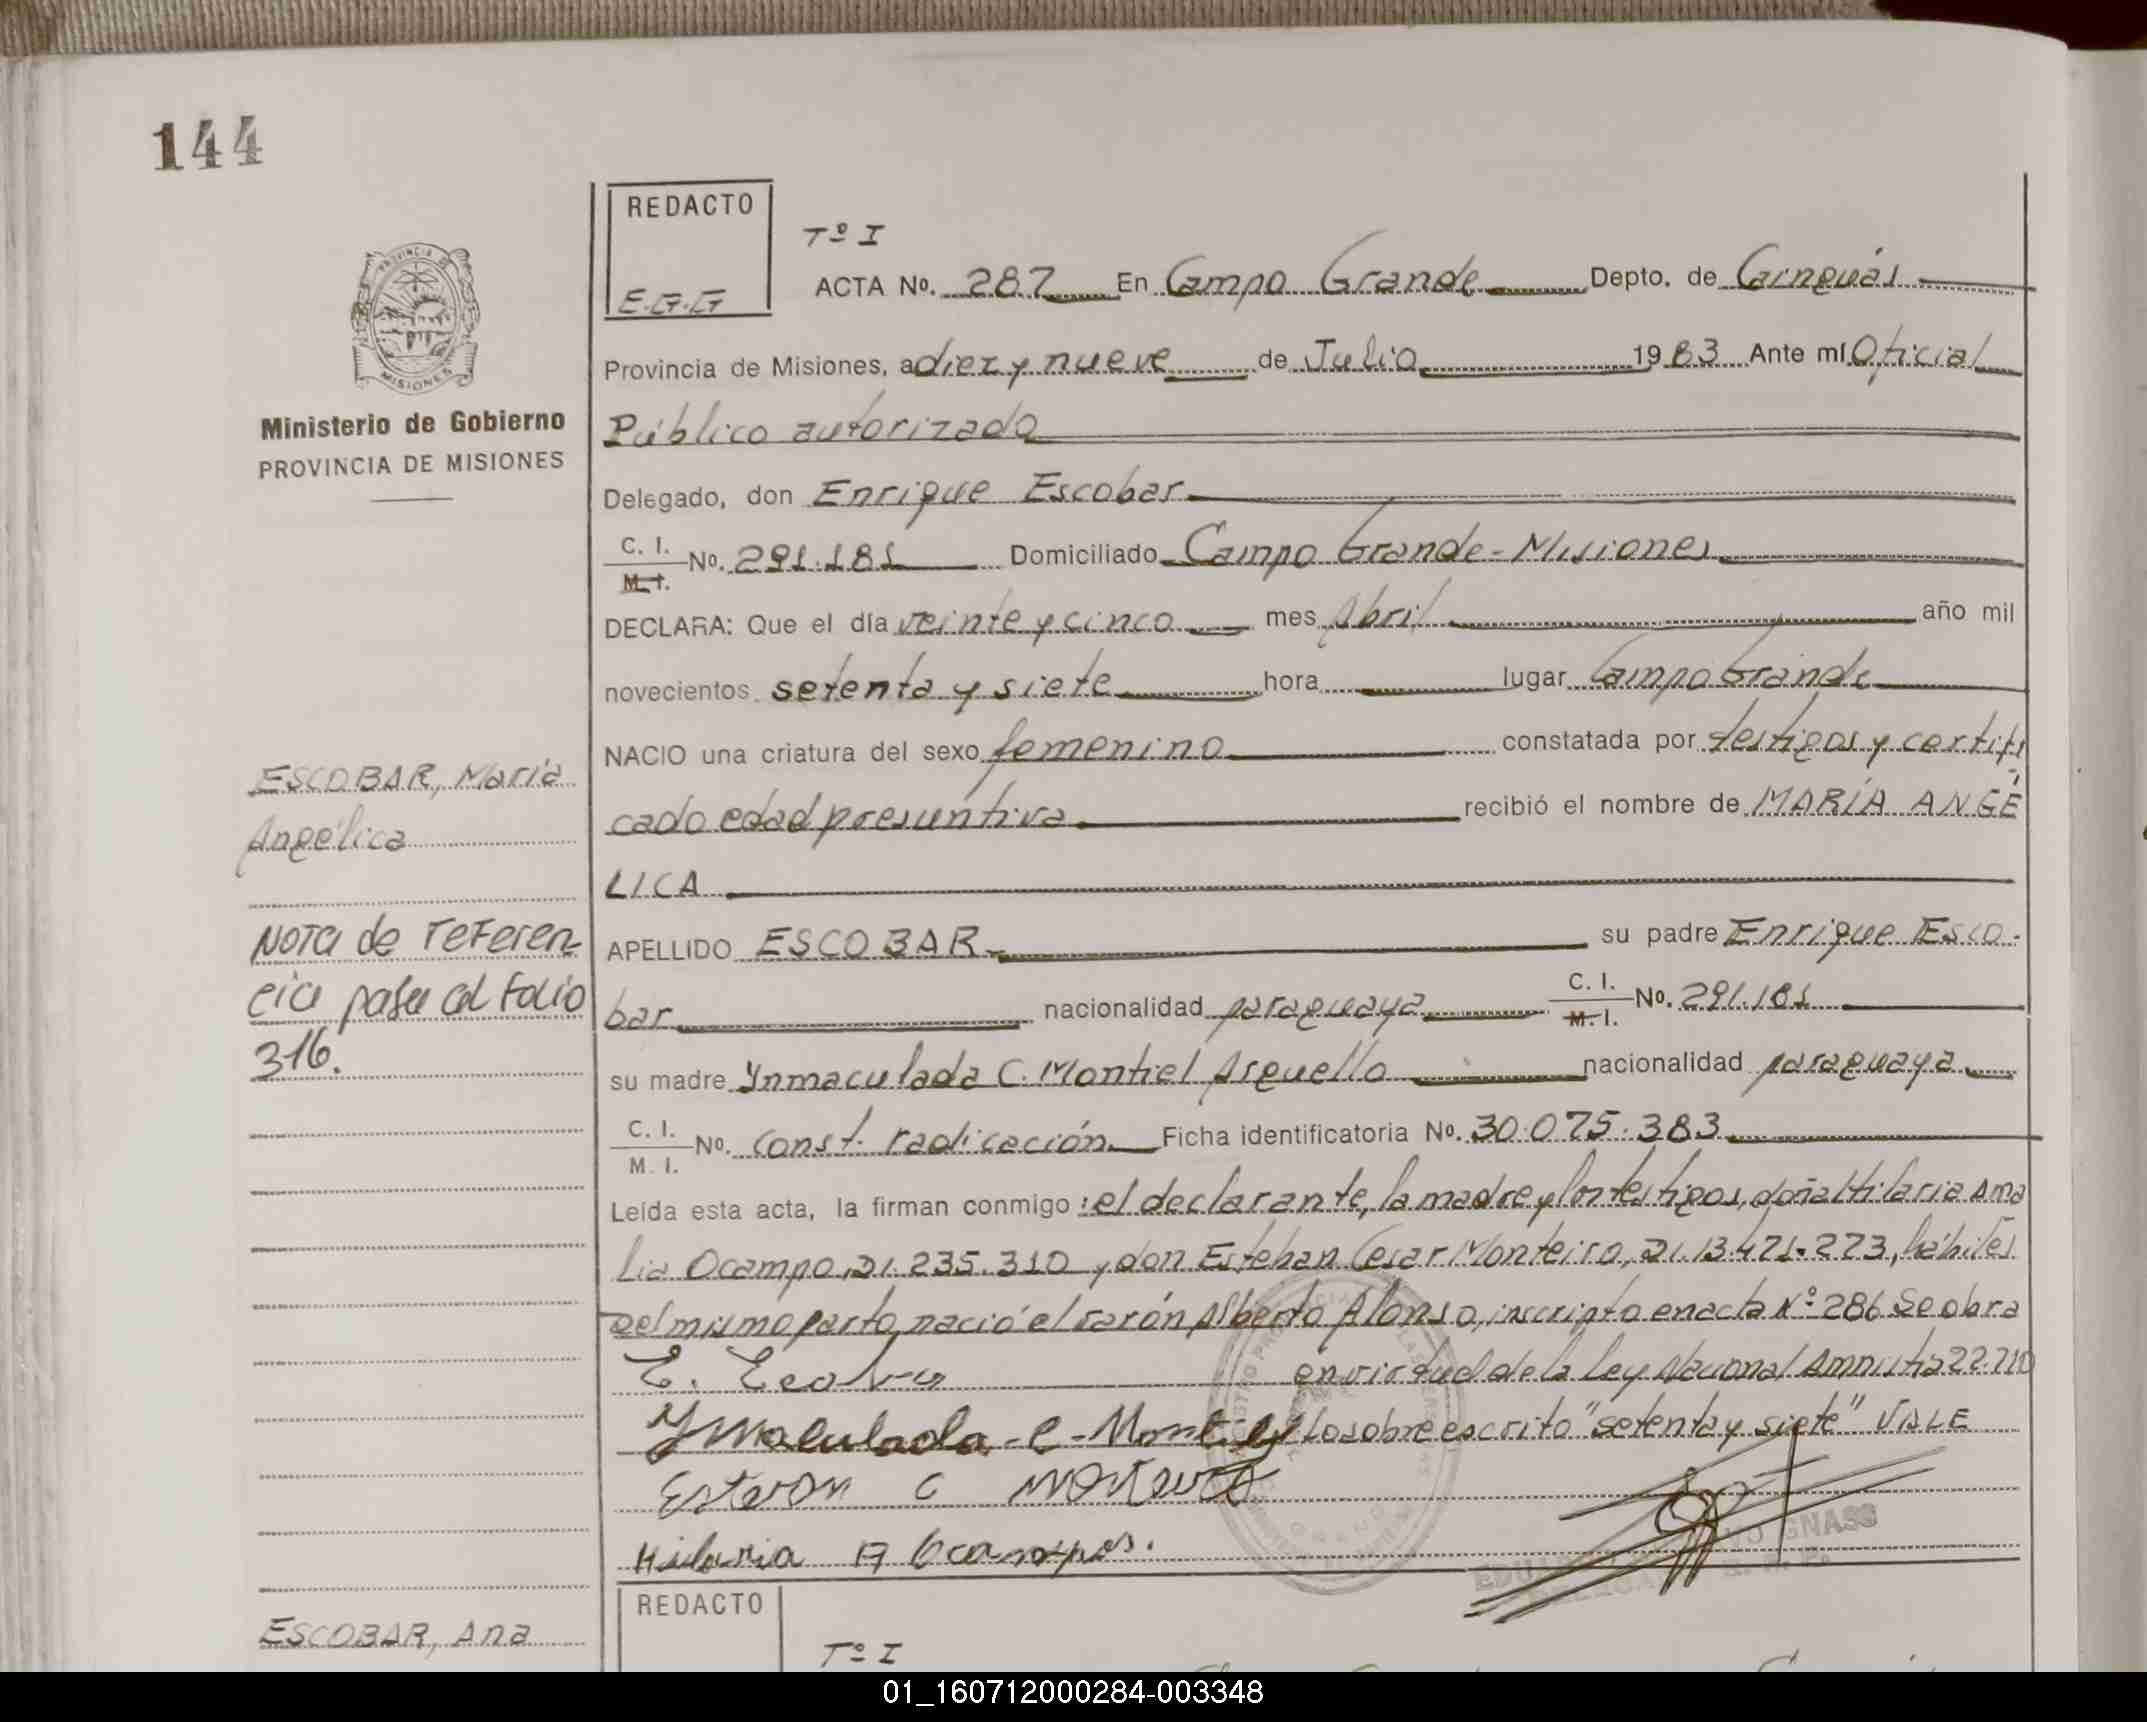 144
PROVINCIA DE
MISIONES
Ministerio de Gobierno
PROVINCIA DE MISIONES
REDACTO
E.G.G
Tº I
ACTA No. 287 En Campo Grande Depto. de Cainguás
Provincia de Misiones, a diez y nueve de Julio 1983 Ante mí Oficial
Público autorizado
Delegado, don Enrique Escobar
C. I.
M. I. No. 291.181 Domiciliado Campo Grande - Misiones
DECLARA: Que el día veinte y cinco mes Abril año mil
novecientos setenta y siete hora lugar Campo Grande
NACIO una criatura del sexo femenino constatada por testigos y certifi
cado edad presuntiva recibió el nombre de MARÍA ANGÉ
LICA
APELLIDO ESCOBAR su padre Enrique Esco-
bar nacionalidad paraguaya C. I.
M. I. No. 291.181
su madre Ynmaculada C. Montiel Arguello nacionalidad paraguaya
C. I.
M. I. No. const. radicación Ficha identificatoria No. 30.075.383
Leída esta acta, la firman conmigo: el declarante, la madre y los testigos, doña Hilaria Ama
lia Ocampo, DI. 235.310 y don Esteban Cesar Monteiro, DI. 13.471.273, hábiles
Del mismo parto nació el varón Alberto Alonso, inscripto en acta Nº 286 Se obra
en virtud de la Ley Nacional Amnistia 22.710
Ynmaculada - C - Montiel Lo sobre escrito "setenta y siete" VALE
Hilaria A Ocampos.
ESCOBAR, María
Angélica
Nota de referen
cia pasa al folio
316.
ESCOBAR, Ana
REDACTO
Tº I
01_160712000284-003348